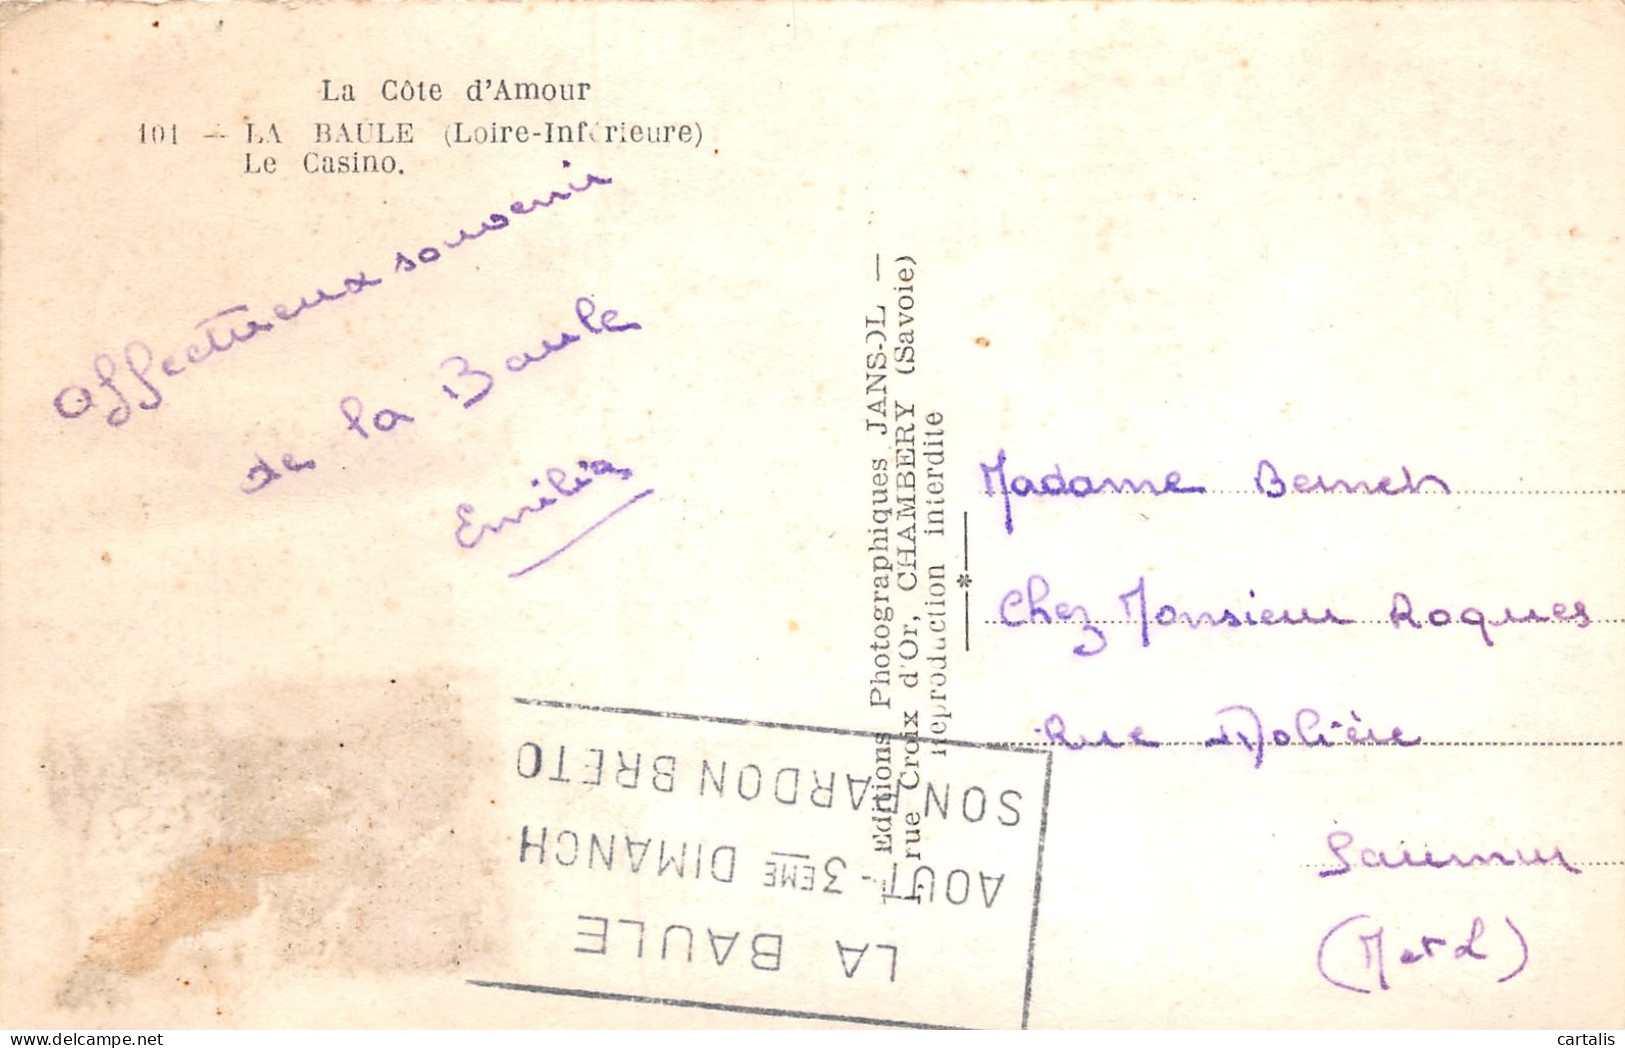 La Côte d'Amour
101 - LA BAULE (Loire-Inférieure)
Le Casino.
Affectueux souvenir
de la Baule
Emilia
Editions Photographiques JANSOL —
rue Croix d'Or, CHAMBERY (Savoie)
Reproduction interdite
Madame
Chez Monsieur Roques
Rue Molière
Saumur
(M et L)
LA BAULE
AOUT - 3EME DIMANCH
SON PARDON BRETO
cartalis